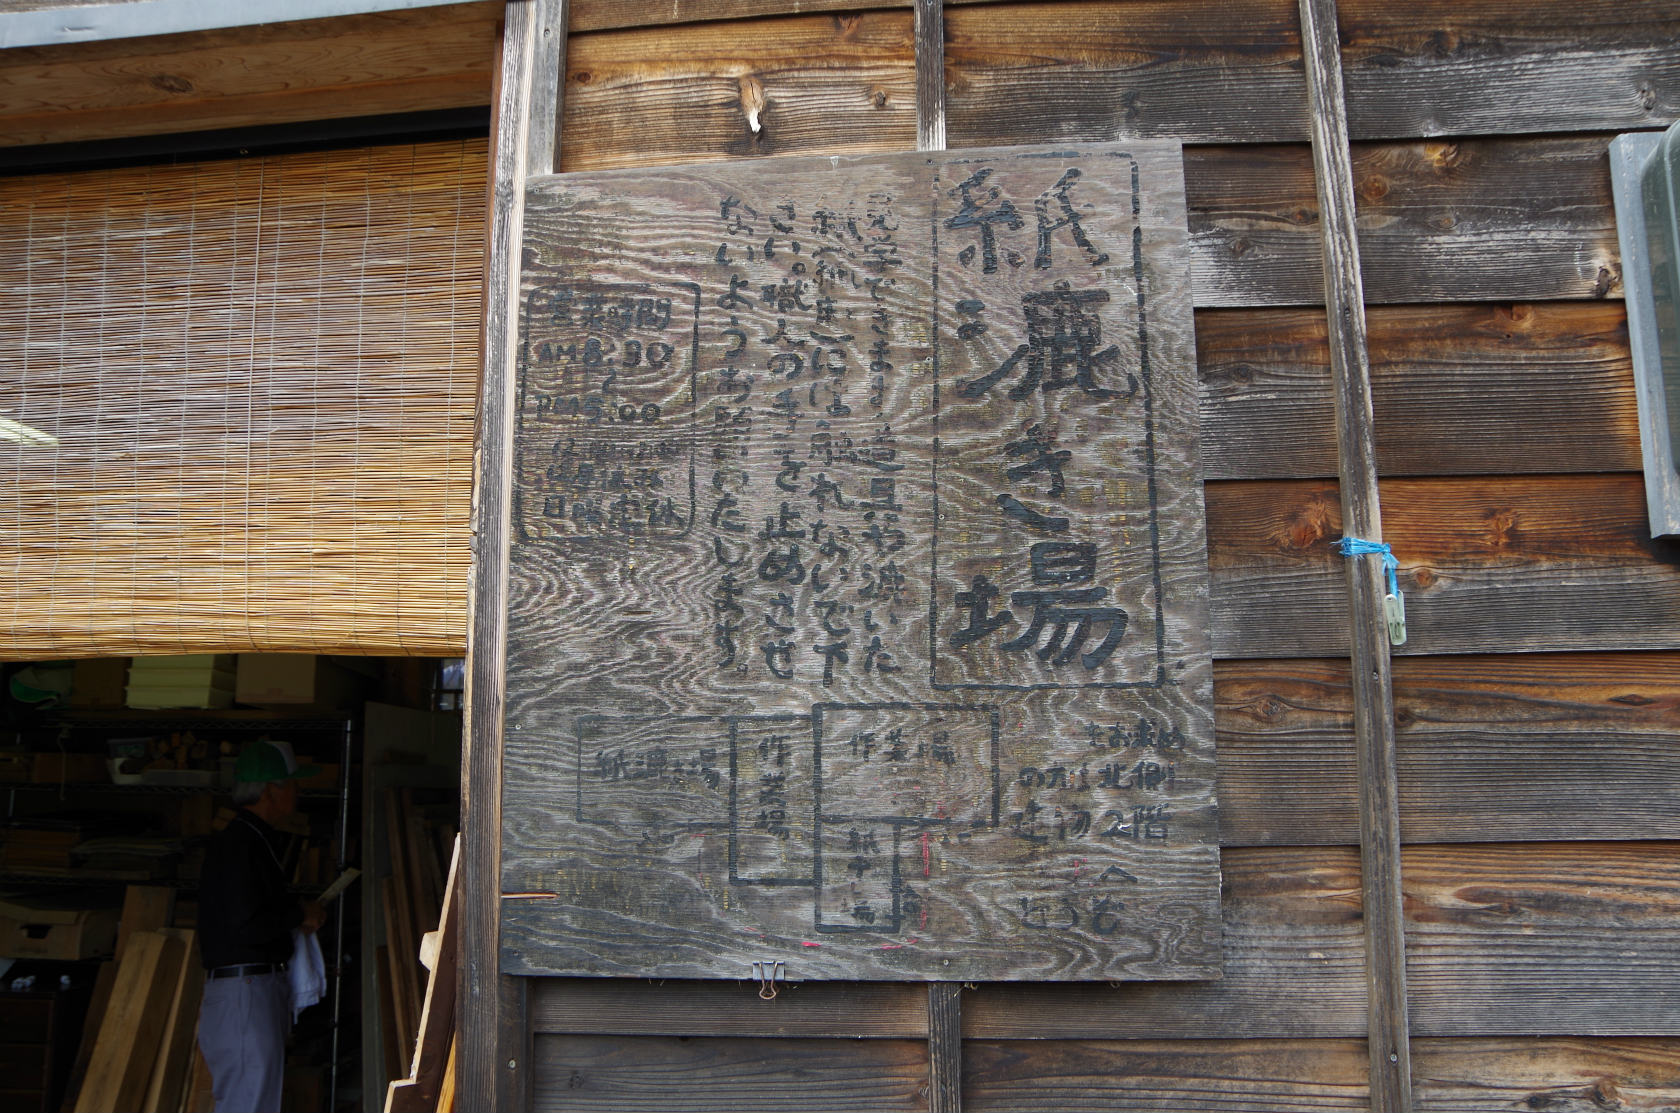 紙漉き場
見学できます。道具や漉いた
紙、紙床には触れないで下
さい。職人の手を止めさせ
ないようお願いいたします。
営業時間
AM8:30
〜
PM5:00
日曜定休
作業場
作業場
紙漉き場
紙干し場
をお求め
の方は北側
建物2階
へどうぞ